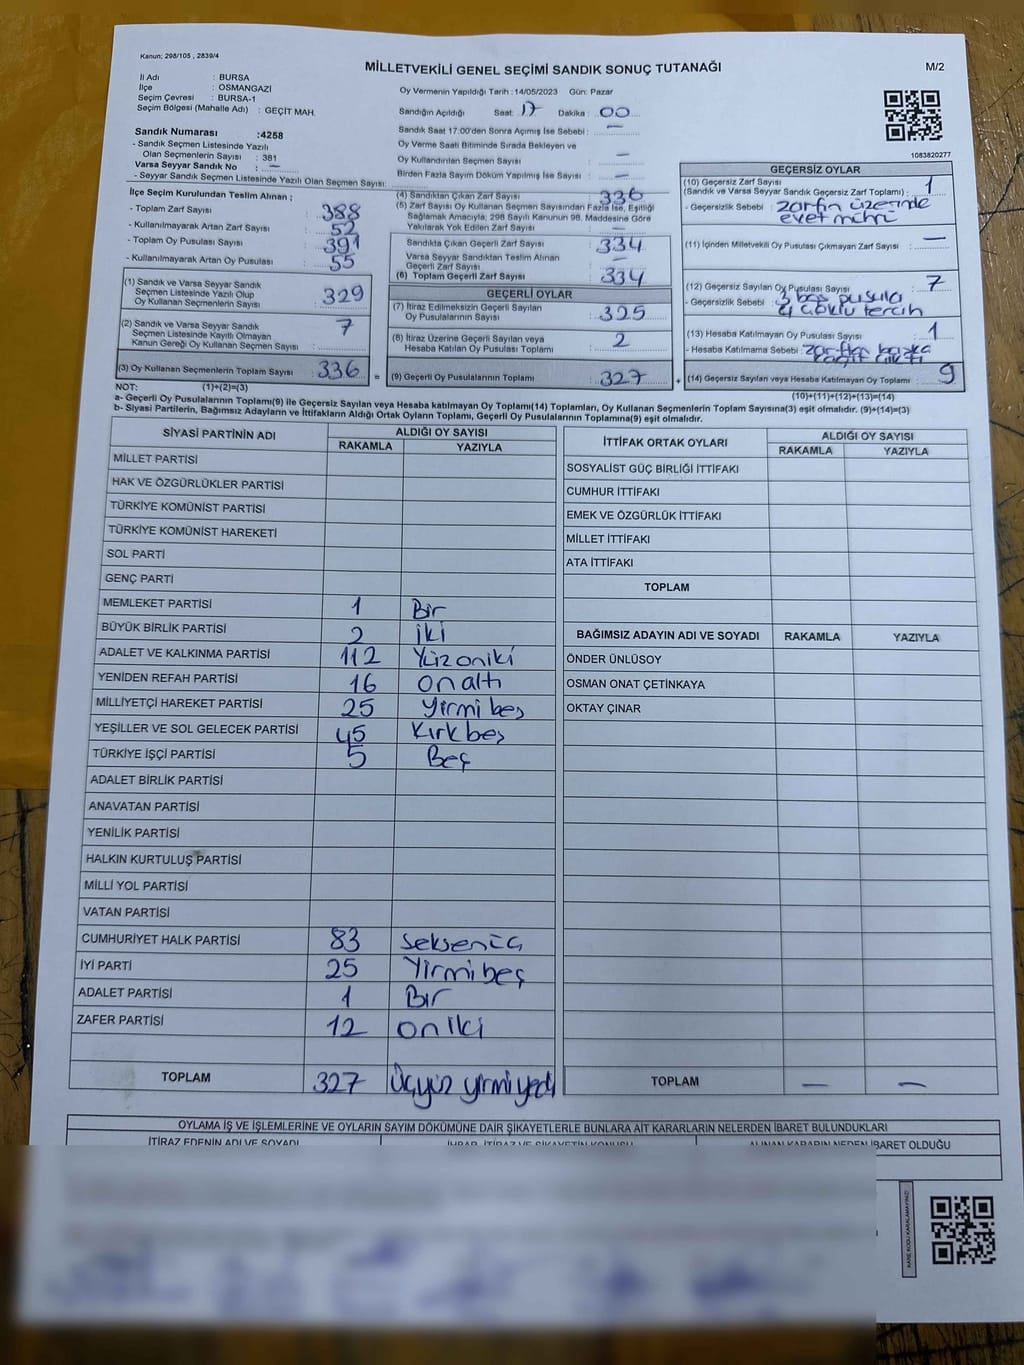 Kanun; 298/105 , 2839/4
MİLLETVEKİLİ GENEL SEÇİMİ SANDIK SONUÇ TUTANAĞI
M/2
İl Adı : BURSA
İlçe : OSMANGAZİ
Seçim Çevresi : BURSA-1
Seçim Bölgesi (Mahalle Adı) : GEÇİT MAH.
Sandık Numarası :4258
- Sandık Seçmen Listesinde Yazılı
Olan Seçmenlerin Sayısı : 381
Varsa Seyyar Sandık No : —
- Seyyar Sandık Listesinde Yazılı Olan Seçmen Sayısı:
Oy Vermenin Yapıldığı Tarih : 14/05/2023 Gün: Pazar
Sandığın Açıldığı Saat: 17 Dakika : 00
Sandık Saat 17:00'den Sonra Açımış İse Sebebi : —
Oy Verme Saati Bitiminde Sırada Bekleyen ve
Oy Kullandırılan Seçmen Sayısı : —
Birden Fazla Sayım Döküm Yapılmış İse Sayısı : —
1083820277
İlçe Seçim Kurulundan Teslim Alınan ;
- Toplam Zarf Sayısı : 388
- Kullanılmayarak Artan Zarf Sayısı : 52
- Toplam Oy Pusulası Sayısı : 391
- Kullanılmayarak Artan Oy Pusulası : 55
(1) Sandık ve Varsa Seyyar Sandık
Seçmen Listesinde Yazılı Olup
Oy Kullanan Seçmenlerin Sayısı : 329
(2) Sandık ve Varsa Seyyar Sandık
Seçmen Listesinde Kayıtlı Olmayan
Kanun Gereği Oy Kullanan Seçmen Sayısı : 7
(3) Oy Kullanan Seçmenlerin Toplam Sayısı : 336
=
(4) Sandıktan Çıkan Zarf Sayısı : 336
(5) Zarf Sayısı Oy Kullanan Seçmen Sayısından Fazla İse, Eşitliği
Sağlamak Amacıyla; 298 Sayılı Kanunun 98. Maddesine Göre
Yakılarak Yok Edilen Zarf Sayısı : —
Sandıkta Çıkan Geçerli Zarf Sayısı : 334
Varsa Seyyar Sandıktan Teslim Alınan
Geçerli Zarf Sayısı : —
(6) Toplam Geçerli Zarf Sayısı : 334
GEÇERLİ OYLAR
(7) İtiraz Edilmeksizin Geçerli Sayılan
Oy Pusulalarının Sayısı : 325
(8) İtiraz Üzerine Geçerli Sayılan veya
Hesaba Katılan Oy Pusulası Toplamı : 2
(9) Geçerli Oy Pusulalarının Toplamı : 327
+
GEÇERSİZ OYLAR
(10) Geçersiz Zarf Sayısı
(Sandık ve Varsa Seyyar Sandık Geçersiz Zarf Toplamı) : 1
- Geçersizlik Sebebi : zarfın üzerinde
evet mührü
(11) İçinden Milletvekili Oy Pusulası Çıkmayan Zarf Sayısı : —
(12) Geçersiz Sayılan Oy Pusulası Sayısı : 7
- Geçersizlik Sebebi : 3 boş pusula
4 çoklu tercih
(13) Hesaba Katılmayan Oy Pusulası Sayısı : 1
- Hesaba Katılmama Sebebi : zarftan başka
kağıt çıktı
(14) Geçersiz Sayılan veya Hesaba Katılmayan Oy Toplamı : 9
NOT: (1)+(2)=(3)
(10)+(11)+(12)+(13)=(14)
a- Geçerli Oy Pusulalarının Toplamı(9) ile Geçersiz Sayılan veya Hesaba katılmayan Oy Toplamı(14) Toplamları, Oy Kullanan Seçmenlerin Toplam Sayısına(3) eşit olmalıdır. (9)+(14)=(3)
b- Siyasi Partilerin, Bağımsız Adayların ve İttifakların Aldığı Ortak Oyların Toplamı, Geçerli Oy Pusulalarının Toplamına(9) eşit olmalıdır.
SİYASİ PARTİNİN ADI
ALDIĞI OY SAYISI
RAKAMLA YAZIYLA
MİLLET PARTİSİ
HAK VE ÖZGÜRLÜKLER PARTİSİ
TÜRKİYE KOMÜNİST PARTİSİ
TÜRKİYE KOMÜNİST HAREKETİ
SOL PARTİ
GENÇ PARTİ
MEMLEKET PARTİSİ 1 Bir
BÜYÜK BİRLİK PARTİSİ 2 İki
ADALET VE KALKINMA PARTİSİ 112 Yüzoniki
YENİDEN REFAH PARTİSİ 16 onaltı
MİLLİYETÇİ HAREKET PARTİSİ 25 Yirmi beş
YEŞİLLER VE SOL GELECEK PARTİSİ 45 Kırkbeş
TÜRKİYE İŞÇİ PARTİSİ 5 Beş
ADALET BİRLİK PARTİSİ
ANAVATAN PARTİSİ
YENİLİK PARTİSİ
HALKIN KURTULUŞ PARTİSİ
MİLLİ YOL PARTİSİ
VATAN PARTİSİ
CUMHURİYET HALK PARTİSİ 83 seksenüç
İYİ PARTİ 25 Yirmibeş
ADALET PARTİSİ 1 Bir
ZAFER PARTİSİ 12 oniki
TOPLAM 327 Üçyüz yirmiyedi
İTTİFAK ORTAK OYLARI
ALDIĞI OY SAYISI
RAKAMLA YAZIYLA
SOSYALİST GÜÇ BİRLİĞİ İTTİFAKI
CUMHUR İTTİFAKI
EMEK VE ÖZGÜRLÜK İTTİFAKI
MİLLET İTTİFAKI
ATA İTTİFAKI
TOPLAM
BAĞIMSIZ ADAYIN ADI VE SOYADI RAKAMLA YAZIYLA
ÖNDER ÜNLÜSOY
OSMAN ONAT ÇETİNKAYA
OKTAY ÇINAR
TOPLAM — —
OYLAMA İŞ VE İŞLEMLERİNE VE OYLARIN SAYIM DÖKÜMÜNE DAİR ŞİKAYETLERLE BUNLARA AİT KARARLARIN NELERDEN İBARET BULUNDUKLARI
İTİRAZ EDENİN ADI VE SOYADI İHBAR, İTİRAZ VE ŞİKAYETİN KONUSU ALINAN KARARIN NEDEN İBARET OLDUĞU
KARE KODU KARALAMAYINIZ!